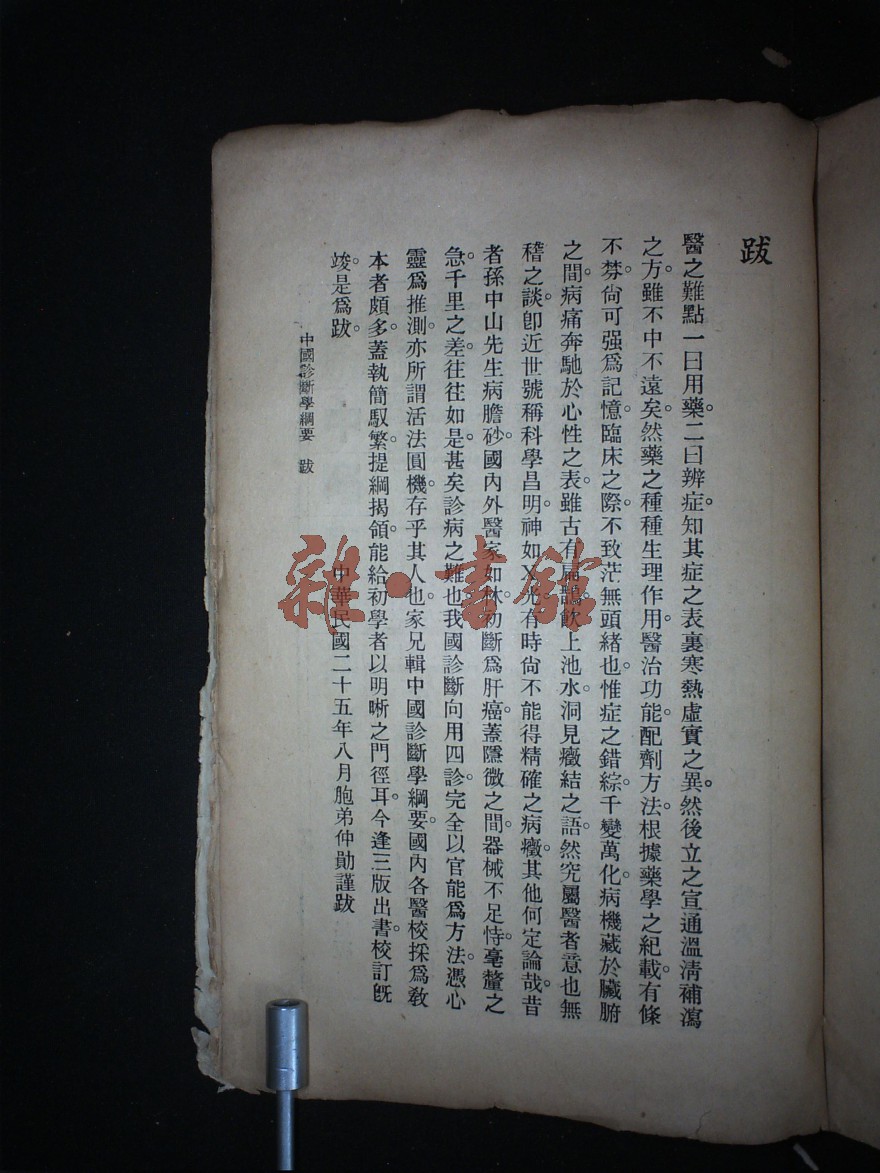 跋
醫之難點一曰用藥。二曰辨症。知其症之表裏寒熱虛實之異。然後立之宣通溫清補瀉
之方。雖不中不遠矣。然藥之種種生理作用。醫治功能。配劑方法。根據藥學之紀載。有條
不棼。尙可强爲記憶。臨床之際。不致茫無頭緒也。惟症之錯綜。千變萬化。病機藏於臟腑
之間。病痛奔馳於心性之表。雖古有扁鵲飮上池水。洞見癥結之語。然究屬醫者意也無
稽之談。卽近世號稱科學昌明。神如X光。有時尙不能得精確之病癥。其他何定論哉。昔
者孫中山先生病膽砂。國內外醫家如林。初斷爲肝癌。蓋隱微之間。器械不足恃。毫釐之
急。千里之差。往往如是。甚矣診病之難也。我國診斷向用四診。完全以官能爲方法。憑心
靈爲推測。亦所謂活法圓機。存乎其人也。家兄輯中國診斷學綱要。國內各醫校採爲敎
本者頗多。蓋執簡馭繁。提綱揭領。能給初學者以明晰之門徑耳。今逢三版出書。校訂旣
竣。是爲跋。
中華民國二十五年八月胞弟仲勛謹跋
中國診斷學綱要 跋
雜·書館